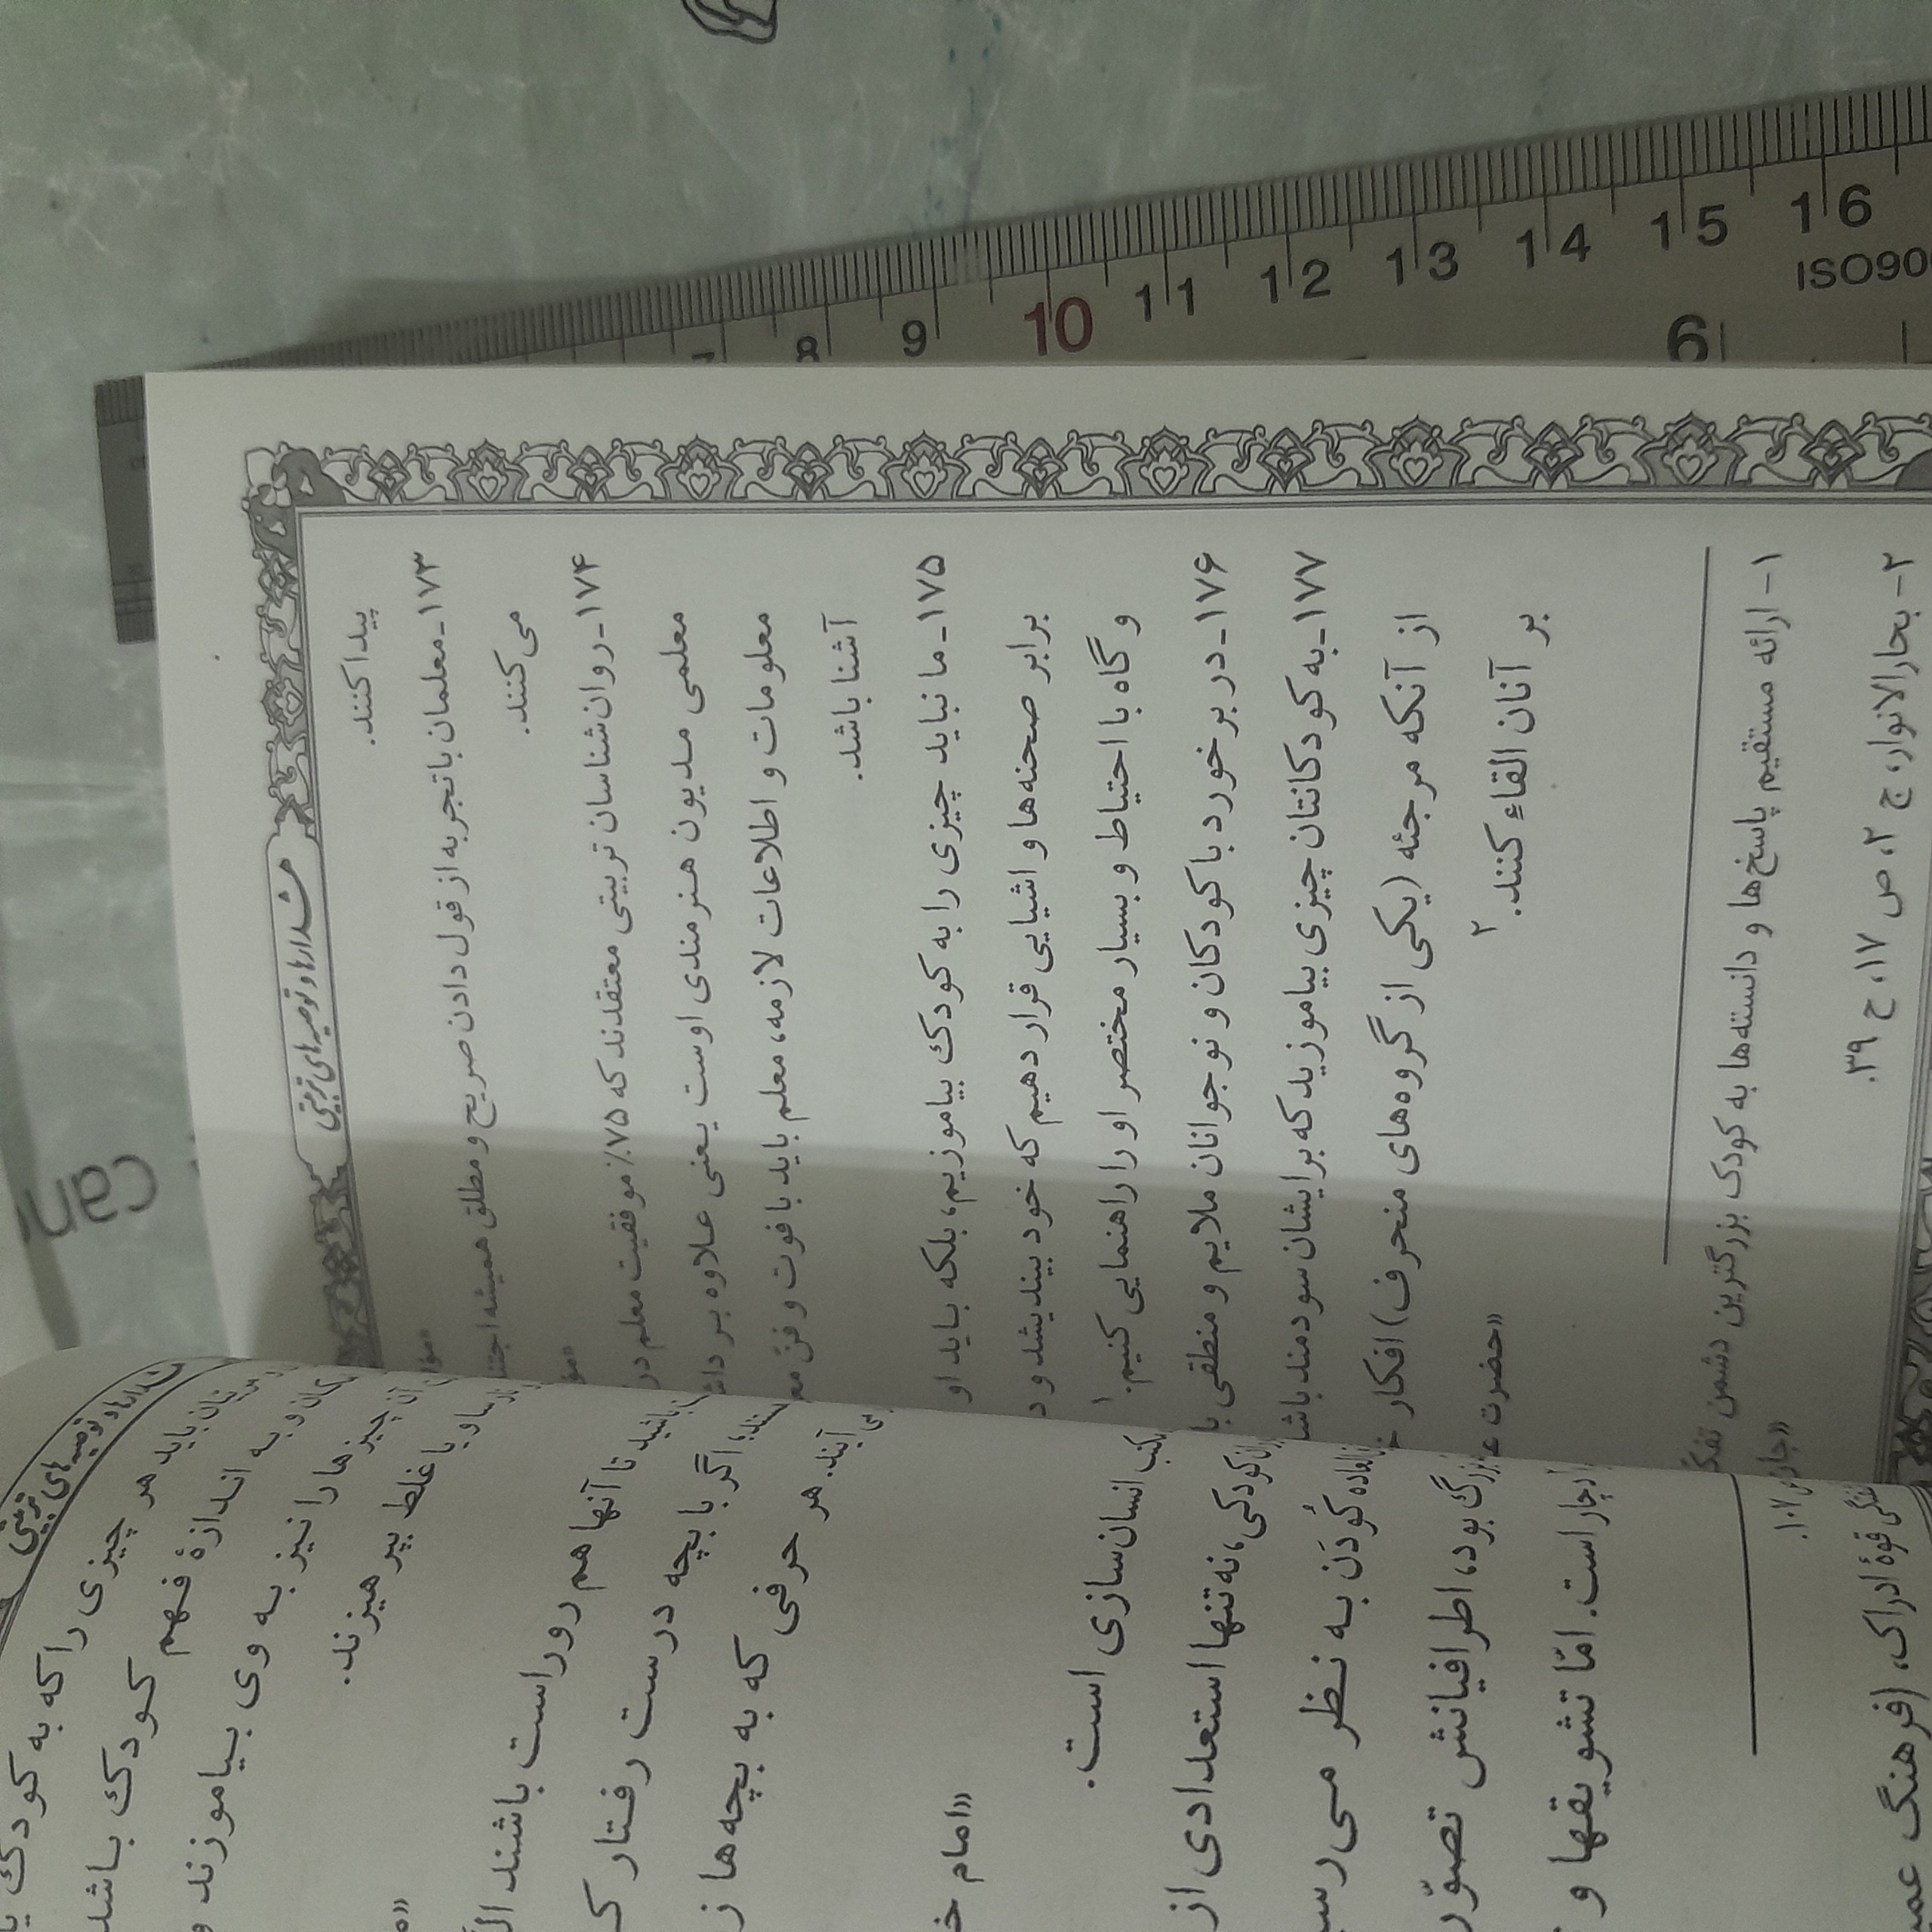 9 10 11 12 13 14 15 16
ISO90
6
هشدارها و توصیه‌های تربیتی
پیدا کنند.
۱۷۳ـ معلمان باتجربه از قول دادن صریح و مطلق همیشه
می‌کنند.
۱۷۴ـ روان‌شناسان تربیتی معتقدند که ۷۵٪ موفقیت معلم در
معلمی مدیون هنرمندی اوست یعنی علاوه بر
معلومات و اطلاعات لازمه، معلم باید با فوت و فنّ
آشنا باشد.
۱۷۵ـ ما نباید چیزی را به کودک بیاموزیم، بلکه باید او
برابر صحنه‌ها و اشیایی قرار دهیم که خود بیندیشد و
و گاه با احتیاط و بسیار مختصر او را راهنمایی کنیم.۱
۱۷۶ـ در برخورد با کودکان و نوجوانان ملایم و منطقی
۱۷۷ـ به کودکانتان چیزی بیاموزید که برایشان سودمند
از آنکه مرجئه (یکی از گروه‌های منحرف) افکار
بر آنان القاءِ کنند.۲
«حضرت
۱- ارائه مستقیم پاسخ‌ها و دانسته‌ها به کودک بزرگترین دشمن
۲- بحارالانوار، ج ۲، ص ۱۷، ح ۳۹.
هشدارها و توصیه‌های تربیتی
باید هر چیزی را که به کودک
و به اندازهٔ فهم کودک باشد
آن چیزها را نیز به وی بیاموزند و
و یا غلط بپرهیزند.
باشید تا آنها هم روراست باشند
اگر با بچه درست رفتار
هر حرفی که به بچه‌ها
«امام
انسان‌سازی است.
کودکی، نه تنها استعدادی از
کُودَن به نظر می‌رسید
بزرگ بود، اطرافیانش
است. امّا تشویقها و
ص ۱۰۷.
قوهٔ ادراک، (فرهنگ